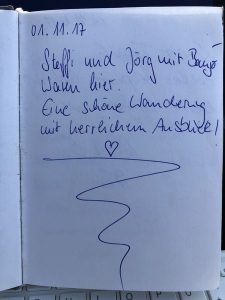 01.11.17
Steffi und Jörg mit
waren hier.
Eine schöne Wanderung
mit herrlichem Ausblick!